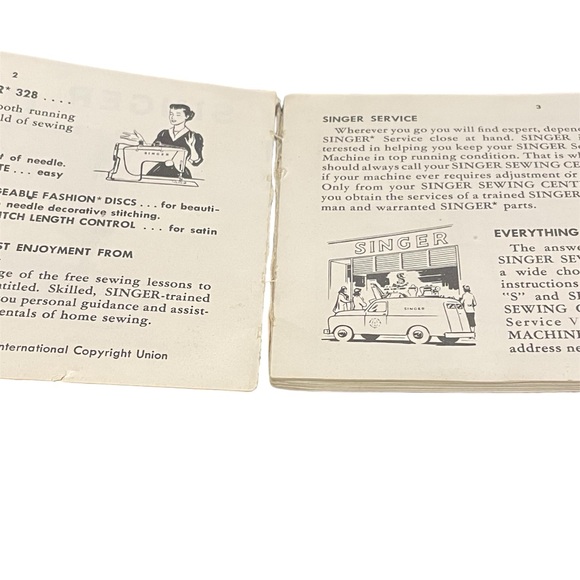 2
R* 328 ....
ooth running
ld of sewing
SINGER
t of needle.
TE ... easy
GEABLE FASHION* DISCS ... for beauti-
needle decorative stitching.
TCH LENGTH CONTROL ... for satin
ST ENJOYMENT FROM
ge of the free sewing lessons to
ntitled. Skilled, SINGER-trained
ou personal guidance and assist-
entals of home sewing.
nternational Copyright Union
3
SINGER SERVICE
Wherever you go you will find expert, depen
SINGER* Service close at hand. SINGER
terested in helping you keep your SINGER Se
Machine in top running condition. That is wh
should always call your SINGER SEWING CEN
if your machine ever requires adjustment or
Only from your SINGER SEWING CENT
you obtain the services of a trained SINGER
man and warranted SINGER* parts.
SINGER
S
SINGER
EVERYTHING
The answe
SINGER SEW
a wide choi
instructions
"S" and SI
SEWING C
Service V
MACHINE
address ne